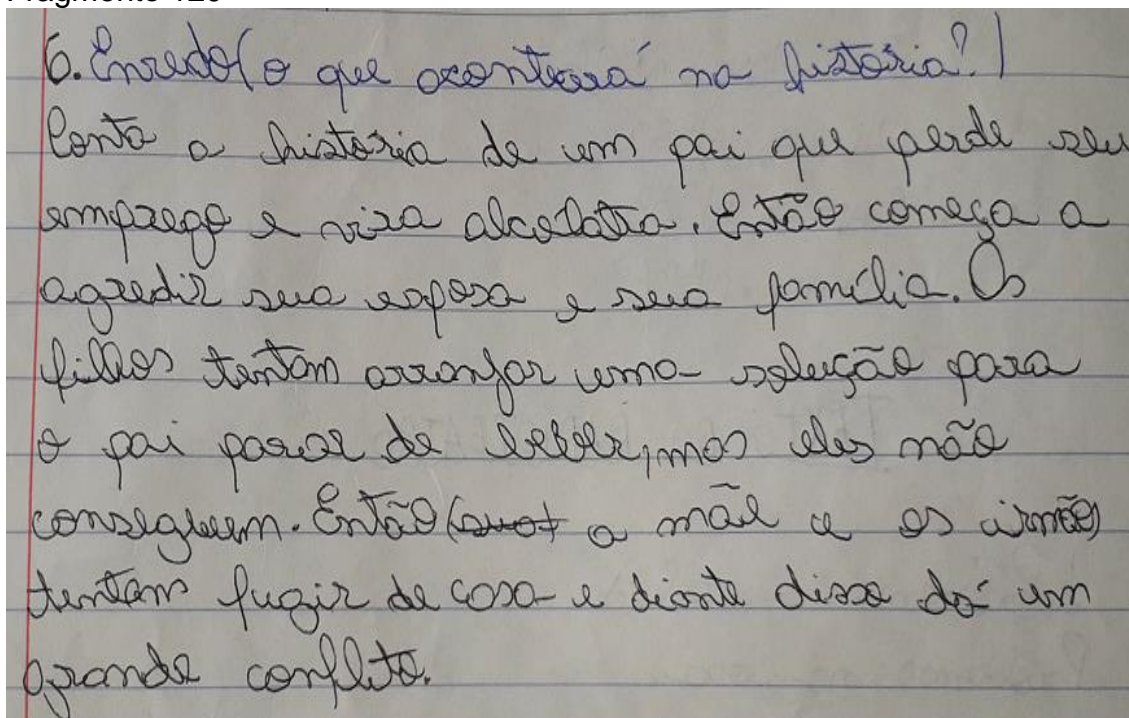 6. Enredo (o que acontecerá na história?)
Conta a história de um pai que perde seu
emprego e vira alcolatra. Então começa a
agredir sua esposa e sua família. Os
filhos tentam arranjar uma solução para
o pai parar de beber, mas eles não
conseguem. Então a mãe e os irmãos
tentam fugir de casa e diante disso dá um
grande conflito.